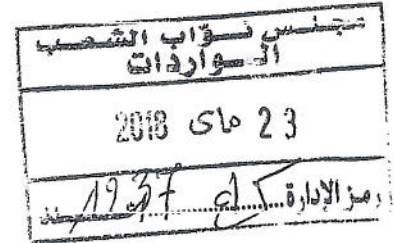 مجلس نواب الشعب
الواردات
23 ماي 2018
رمز الإدارة